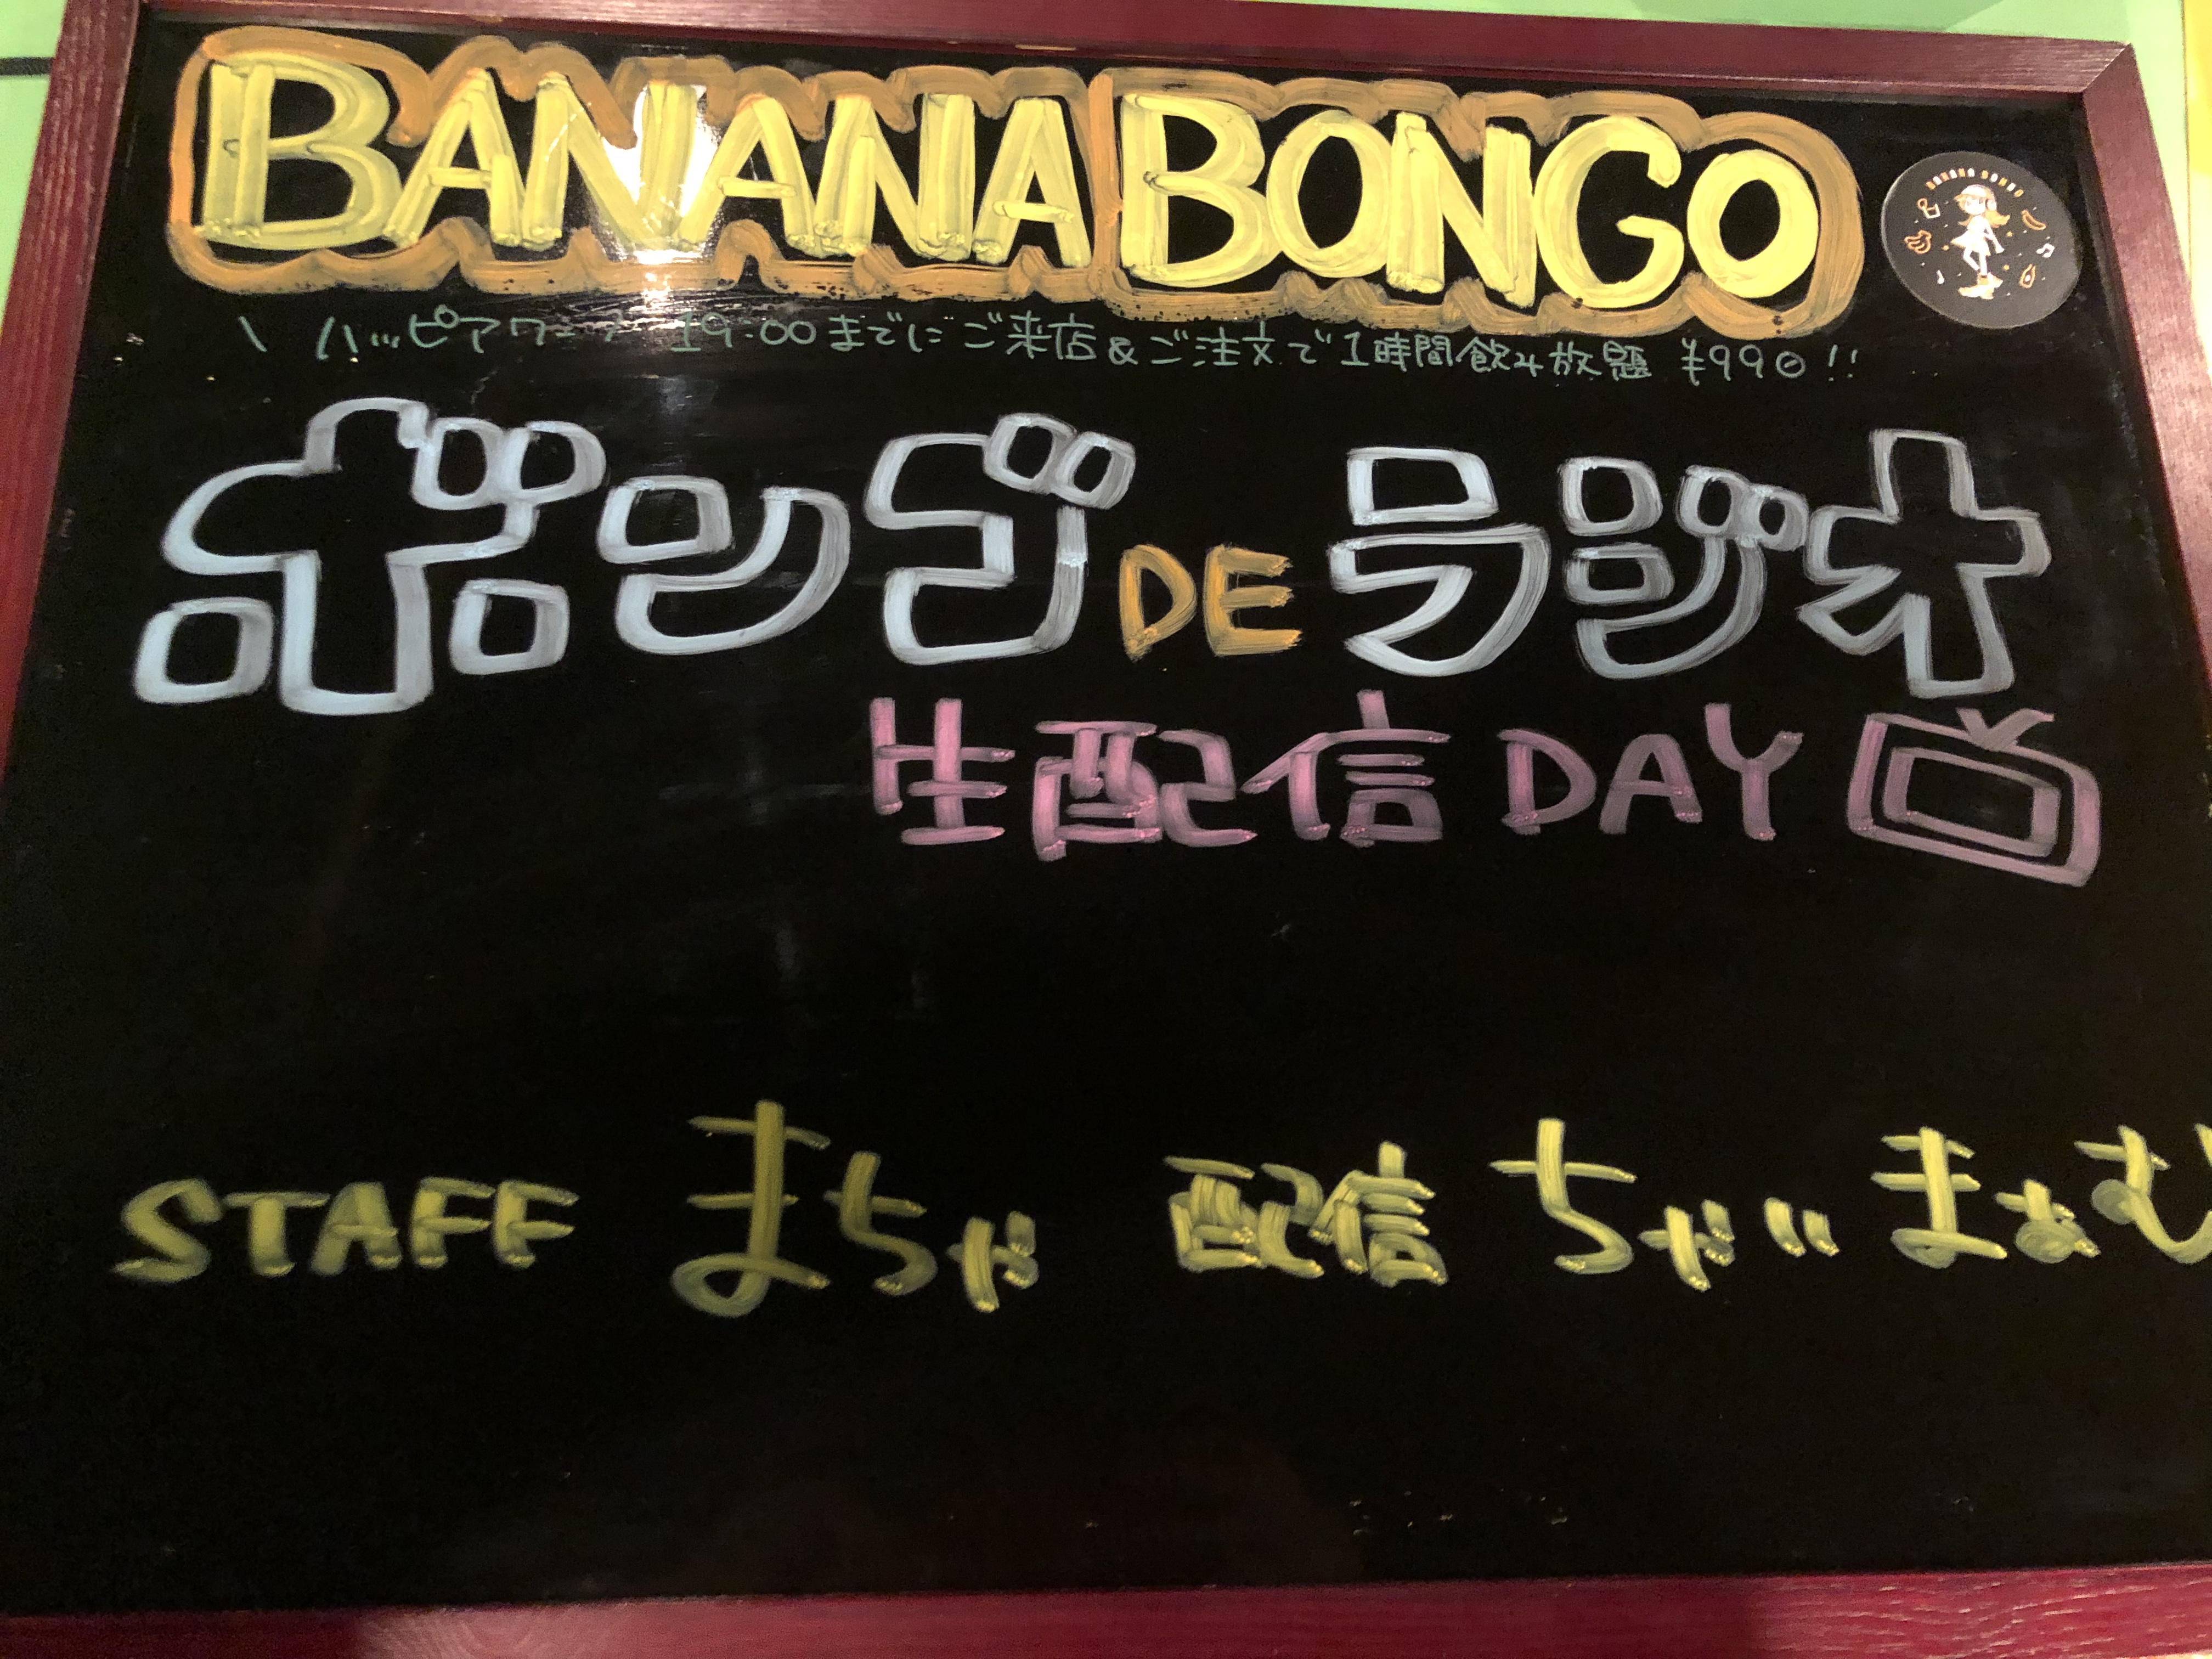 BANANA BONGO
BANANA BONGO
\ ハッピアワー 19:00までにご来店&ご注文で1時間飲み放題 ¥990!!
ボンゴ DE ラジオ
生配信 DAY
STAFF まちゃ 配信 ちゃ" まぁむ